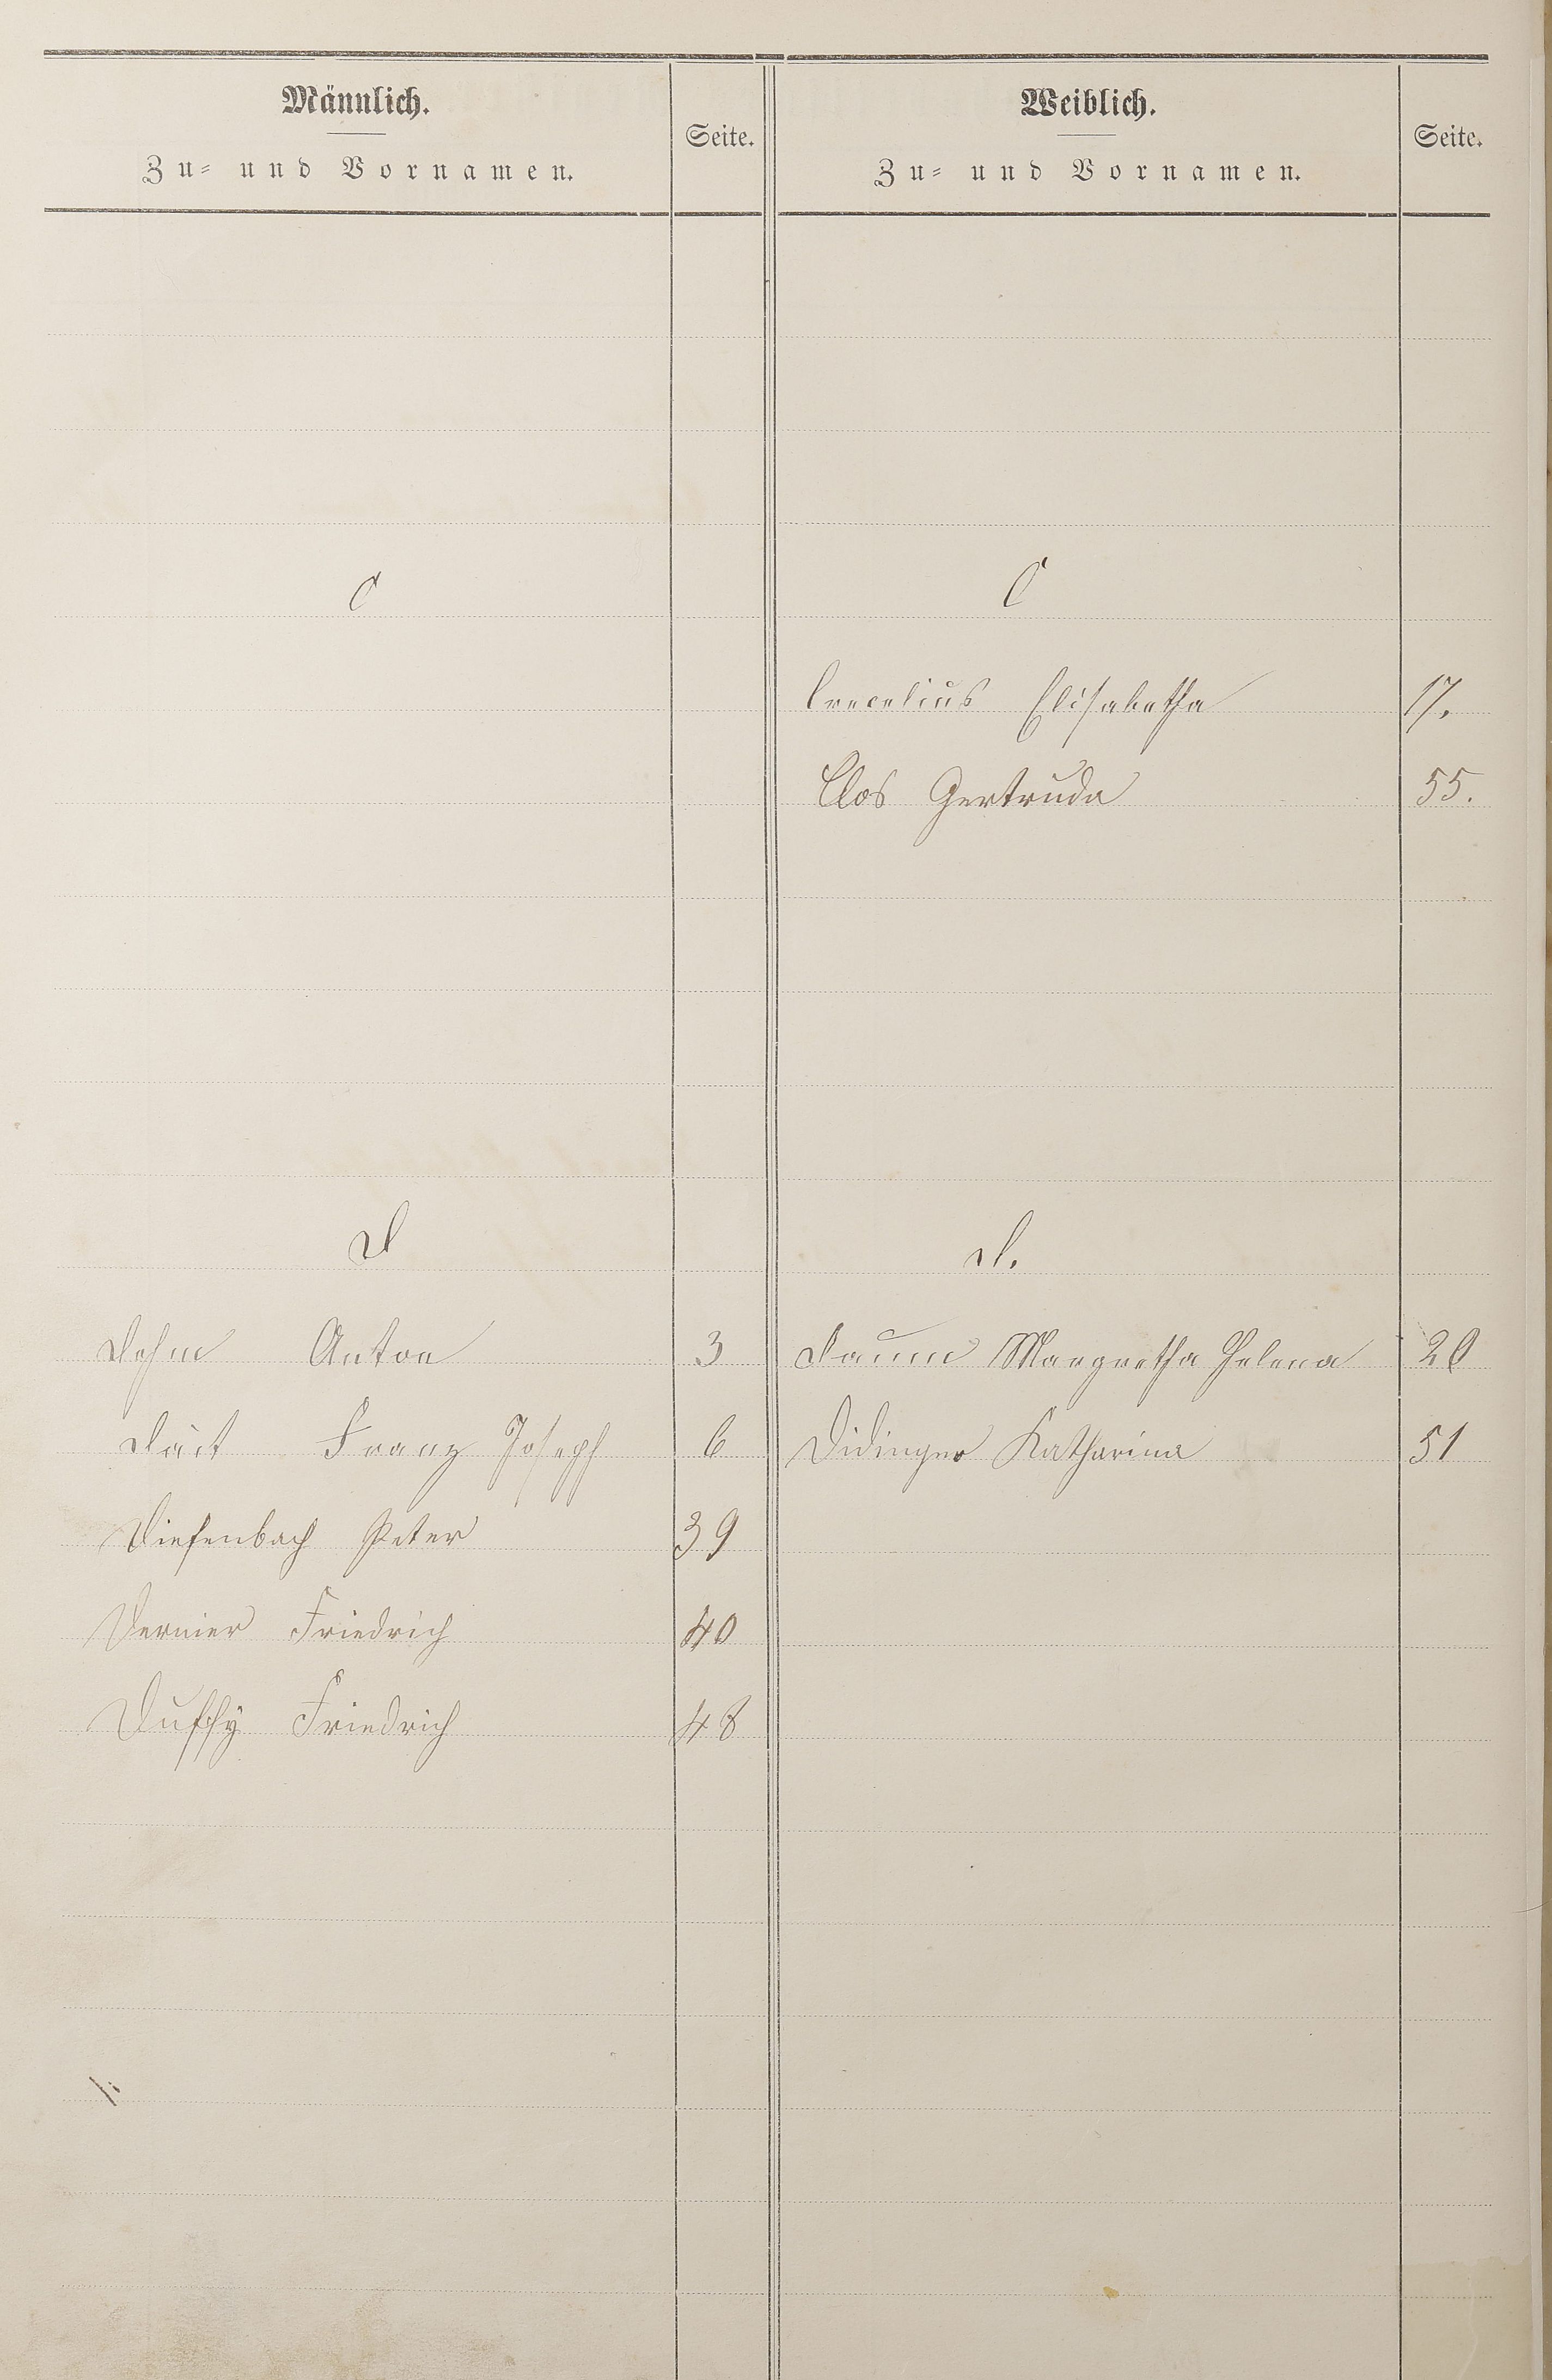 Männlich.
Zu- und Vornamen.
Seite.
Weiblich.
Zu- und Vornamen.
Seite.
C
C
Crecelius Elisabetha 17.
Clos Gertruda 55.
D
D.
Dehm Anton 3
Daum Margretha Helena 20
Franz Joseph 6
Didinger Katharina 51
Diefenbach Peter 39
Dernier Friedrich 40
Duffy Friedrich 48